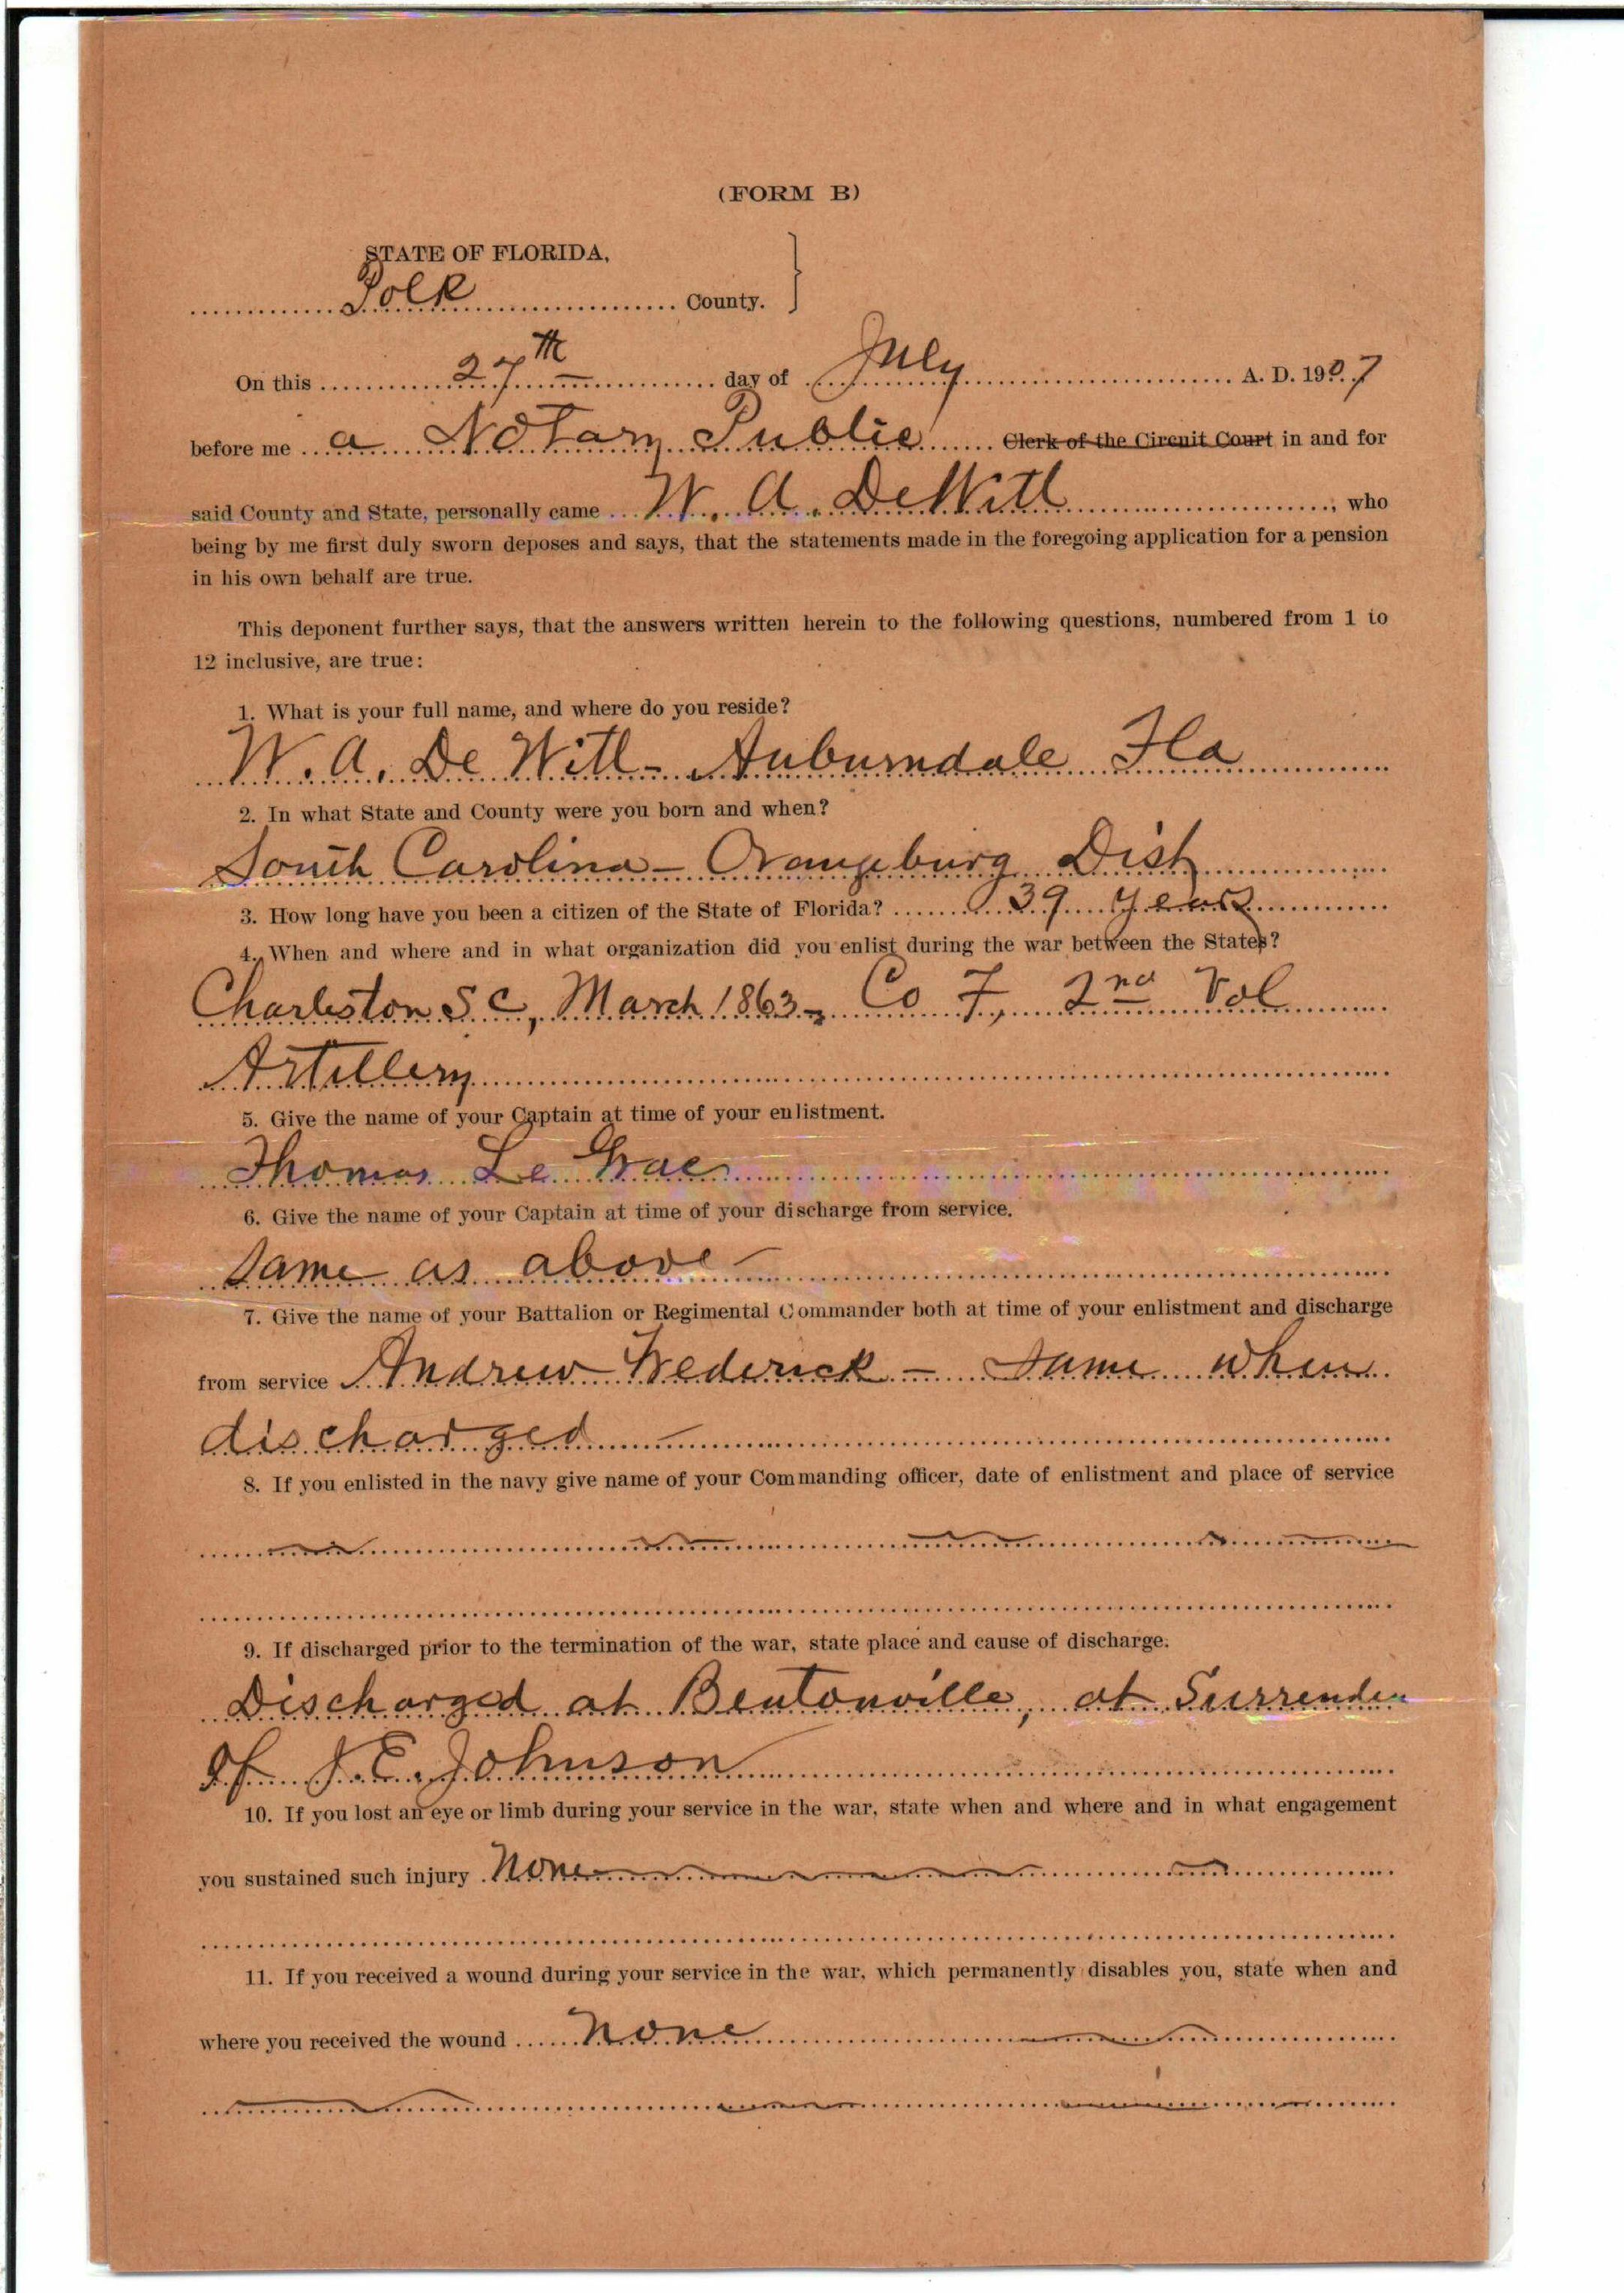 (FORM B)
STATE OF FLORIDA,
Polk County.
On this 27th day of July A. D. 1907
before me a Notary Public Clerk of the Circuit Court in and for
said County and State, personally came W. A. DeWitt, who
being by me first duly sworn deposes and says, that the statements made in the foregoing application for a pension
in his own behalf are true.
This deponent further says, that the answers written herein to the following questions, numbered from 1 to
12 inclusive, are true:
1. What is your full name, and where do you reside?
W. A. De Witt - Auburndale Fla
2. In what State and County were you born and when?
South Carolina - Orangeburg Dist
3. How long have you been a citizen of the State of Florida? 39 years
4. When and where and in what organization did you enlist during the war between the States?
Charleston S C, March 1863 - Co F, 2nd Vol
Artillery
5. Give the name of your Captain at time of your enlistment.
Thomas Le
6. Give the name of your Captain at time of your discharge from service.
Same as above
7. Give the name of your Battalion or Regimental Commander both at time of your enlistment and discharge
from service Andrew Frederick - Same when
discharged
8. If you enlisted in the navy give name of your Commanding officer, date of enlistment and place of service
9. If discharged prior to the termination of the war, state place and cause of discharge.
Discharged at Bentonville, at Surrender
of J. E. Johnson
10. If you lost an eye or limb during your service in the war, state when and where and in what engagement
you sustained such injury None
11. If you received a wound during your service in the war, which permanently disables you, state when and
where you received the wound None